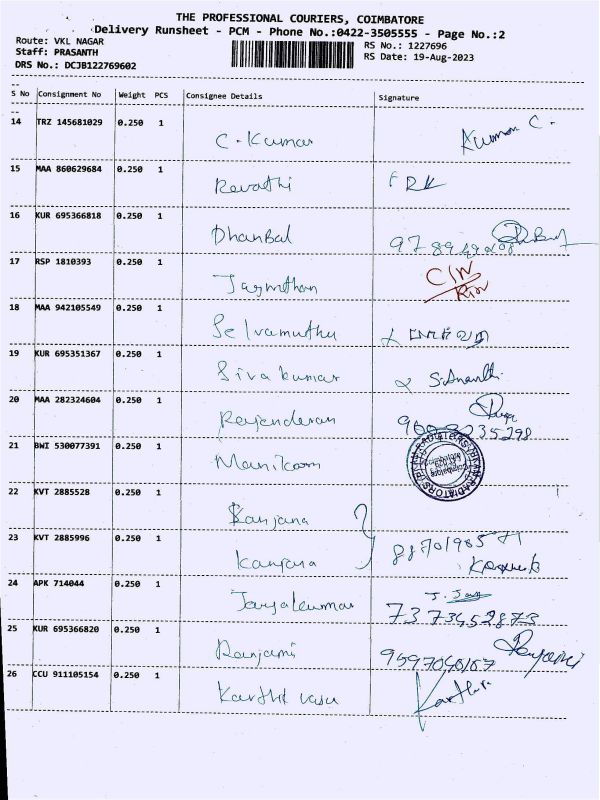 THE PROFESSIONAL COURIERS, COIMBATORE
Delivery Runsheet - PCM - Phone No.:0422-3505555 - Page No.:2
Route: VKL NAGAR
RS No.: 1227696
Staff: PRASANTH
RS Date: 19-Aug-2023
DRS No.: DCJB122769602
S No Consignment No Weight PCS Consignee Details Signature
14 TRZ 145681029 0.250 1 C. Kumar Kumar C.
15 MAA 860629684 0.250 1 Revathi
16 KUR 695366818 0.250 1 Dhanbal
17 RSP 1810393 0.250 1
18 MAA 942105549 0.250 1 Selvamuthu
19 KUR 695351367 0.250 1 Siva kumar S.Ananthi
20 MAA 282324604 0.250 1 Rajenderan
21 BWI 530077391 0.250 1
22 KVT 2885528 0.250 1 Sanjana
23 KVT 2885996 0.250 1 Kanjana
24 APK 714044 0.250 1 Jayakumar 7373452873
25 KUR 695366820 0.250 1 Ranjami
26 CCU 911105154 0.250 1 Karthik vasu